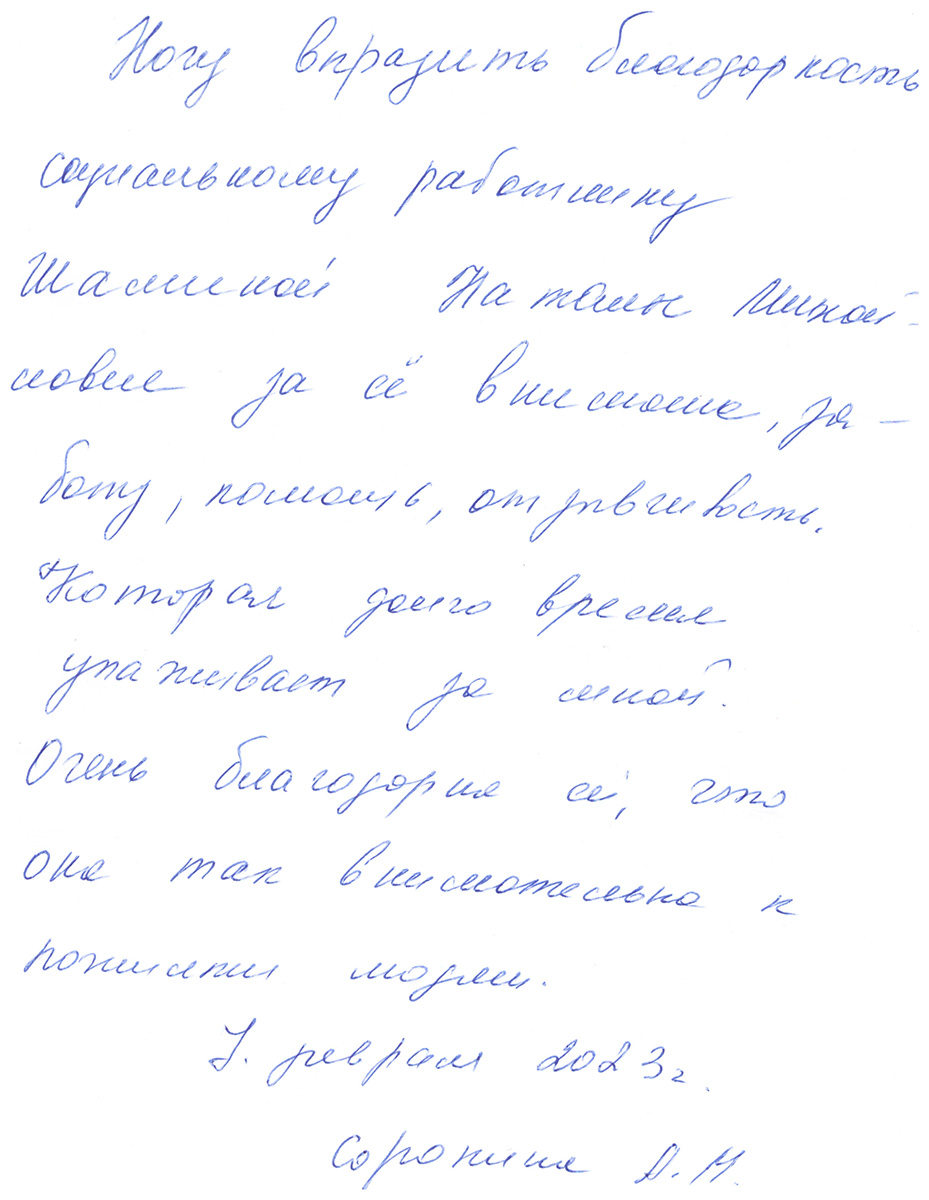 Хочу выразить благодарность
социальному работнику
Шаминой Наталье Михай-
ловне за её внимание, за-
боту, помощь, отзывчивость.
Которая долго время
ухаживает за мной.
Очень благодарна ей, что
она так внимательна к
пожилым людям.
февраля 2023 г.
Сорокина